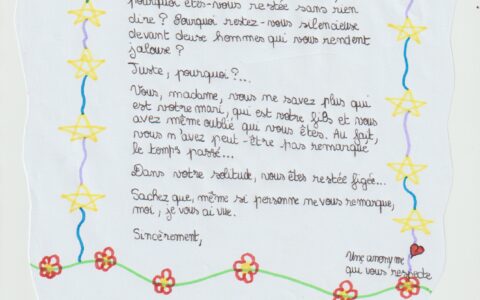 pourquoi êtes-vous restée sans rien
dire ? Pourquoi restez-vous silencieuse
devant deux hommes qui vous rendent
jalouse ?
Juste, pourquoi ?...
Vous, madame, vous ne savez plus qui
est votre mari, qui est votre fils et vous
avez même oublié qui vous êtes. Au fait,
vous n'avez peut-être pas remarqué
le temps passé...
Dans votre solitude, vous êtes restée figée...
Sachez que, même si personne ne vous remarque,
moi, je vous ai vue.
Sincèrement,
Une anonyme
qui vous respecte